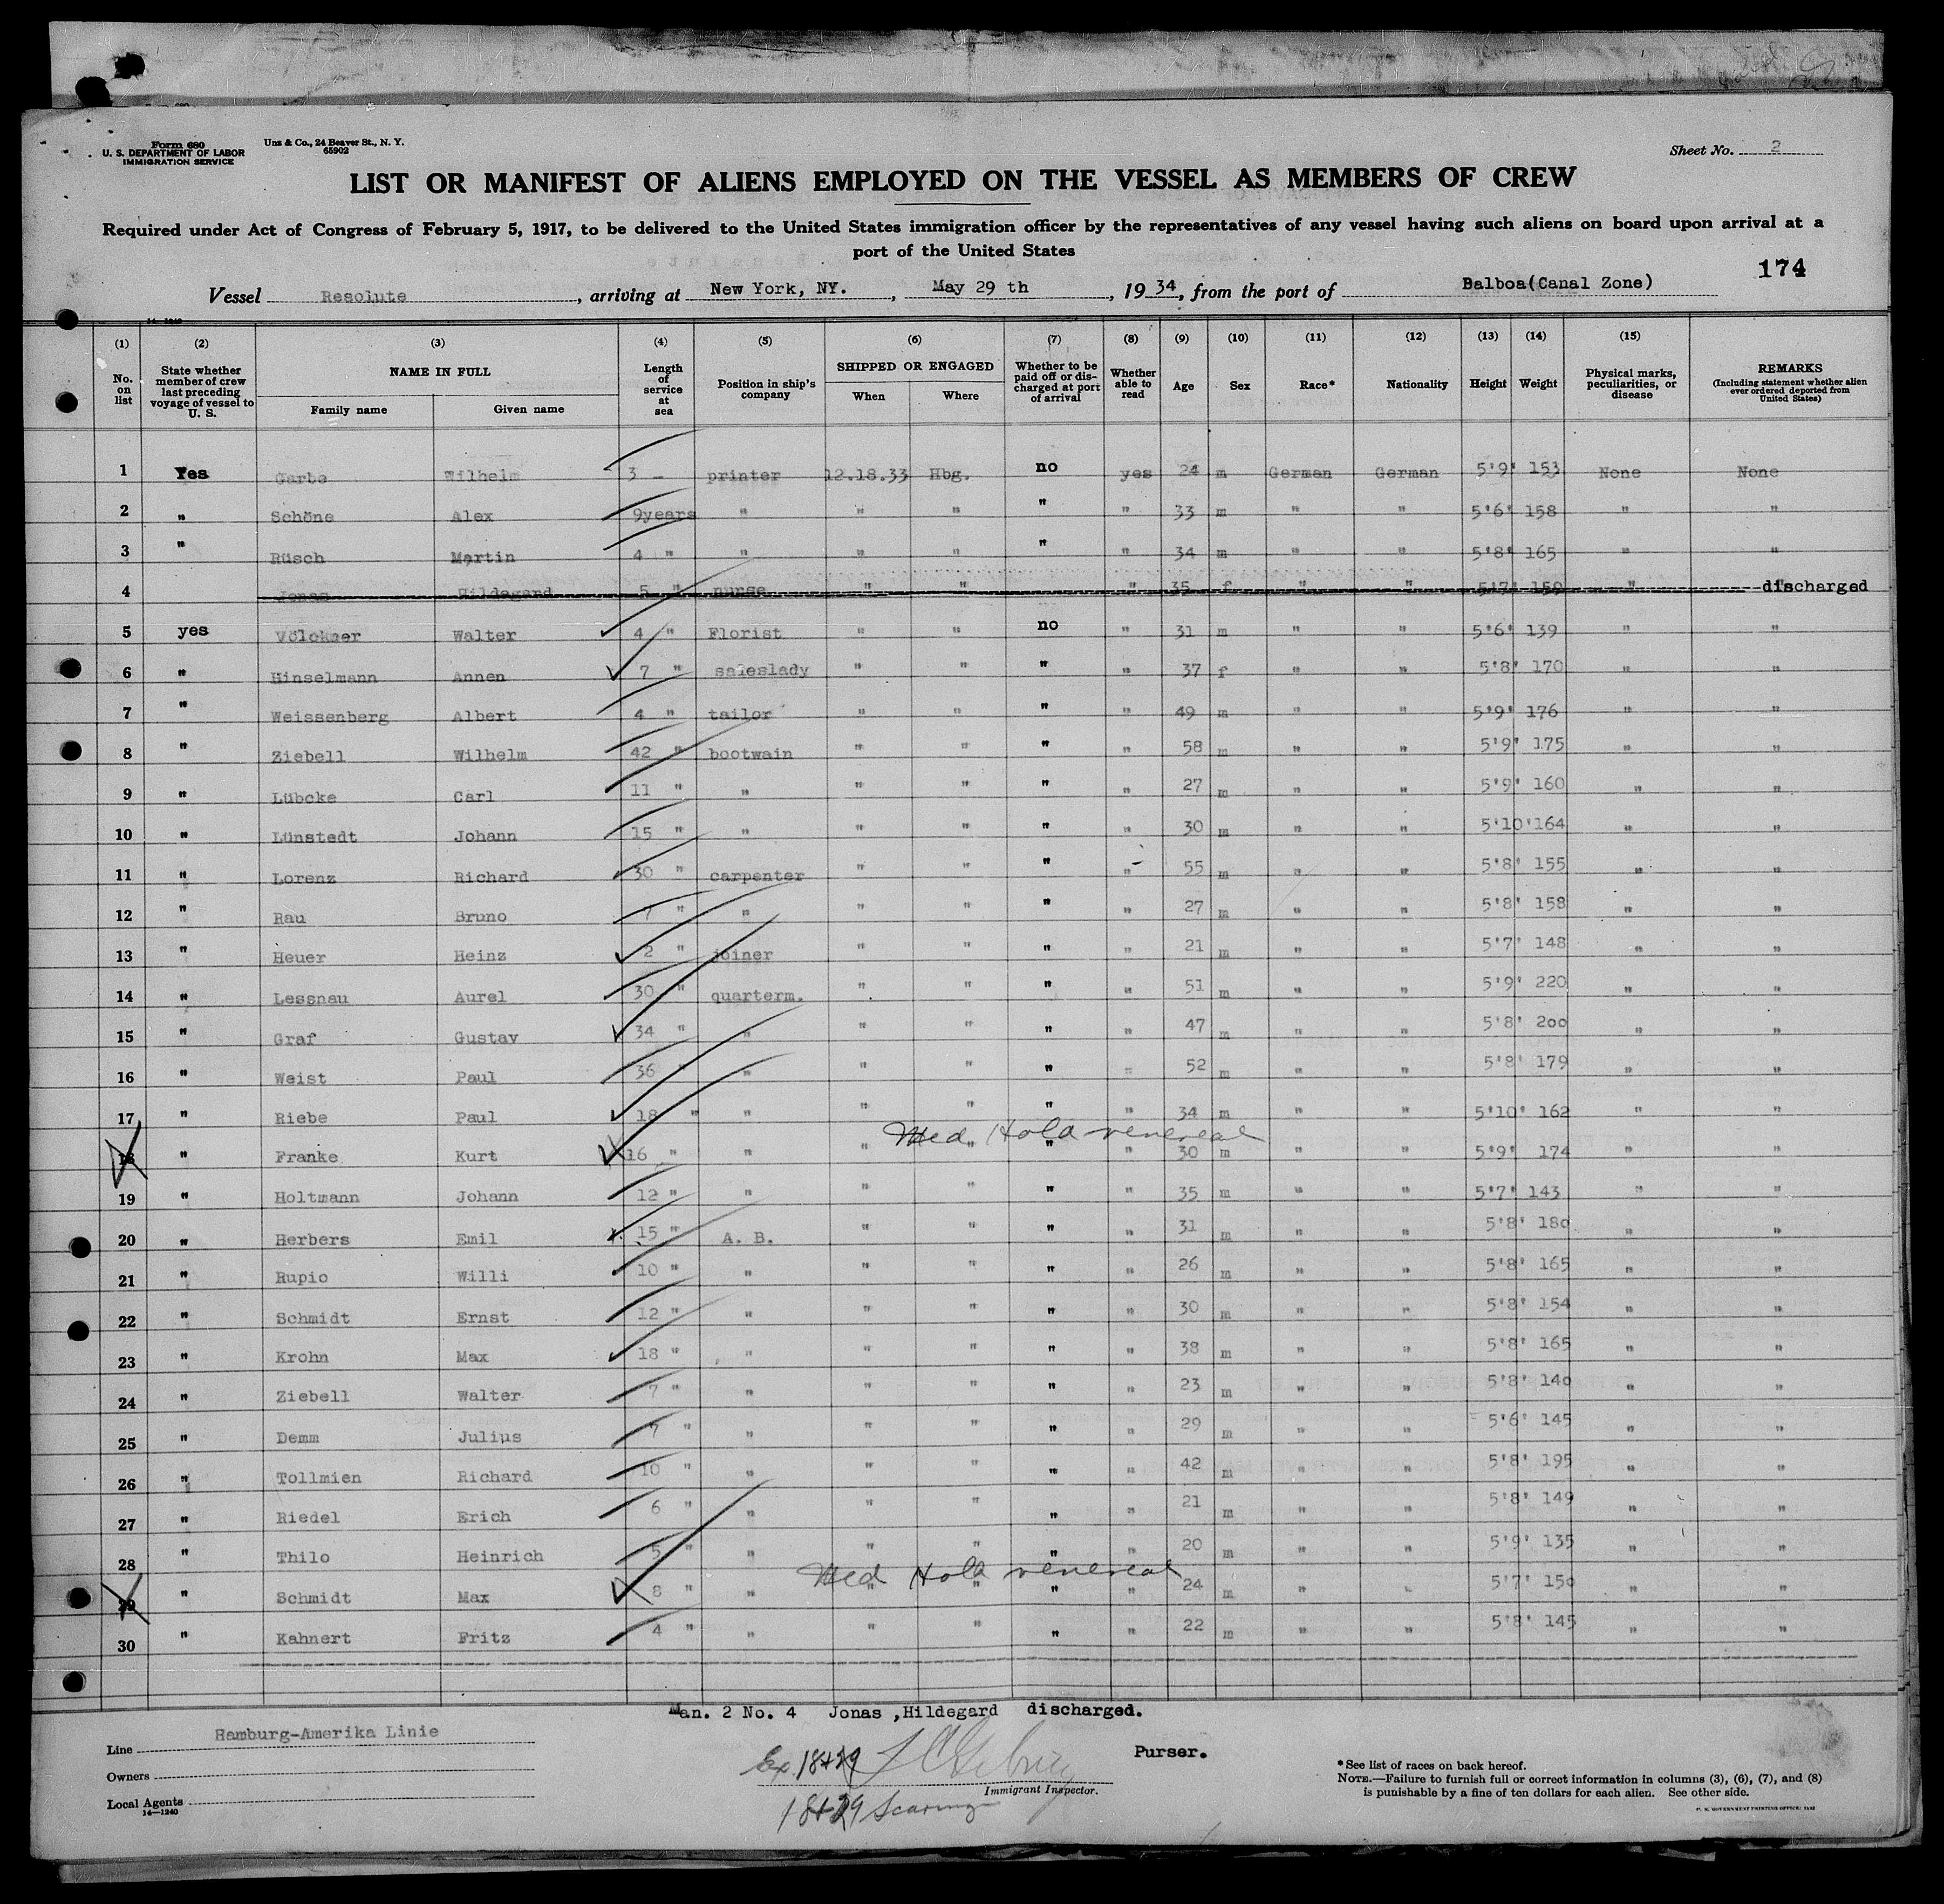 Form 680
U. S. DEPARTMENT OF LABOR
IMMIGRATION SERVICE
Unz & Co., 24 Beaver St., N. Y.
65902
Sheet No. 2
LIST OR MANIFEST OF ALIENS EMPLOYED ON THE VESSEL AS MEMBERS OF CREW
Required under Act of Congress of February 5, 1917, to be delivered to the United States immigration officer by the representatives of any vessel having such aliens on board upon arrival at a
port of the United States
174
Vessel Resolute, arriving at New York, NY., May 29 th, 1934, from the port of Balboa(Canal Zone)
14-1240
(1) (2) (3) (4) (5) (6) (7) (8) (9) (10) (11) (12) (13) (14) (15)
No. on list
State whether member of crew last preceding voyage of vessel to U. S.
NAME IN FULL
Family name
Given name
Length of service at sea
Position in ship's company
SHIPPED OR ENGAGED
When
Where
Whether to be paid off or discharged at port of arrival
Whether able to read
Age
Sex
Race*
Nationality
Height
Weight
Physical marks, peculiarities, or disease
REMARKS
(Including statement whether alien ever ordered deported from United States)
1 Yes Garbe Wilhelm 3 - printer 12.18.33 Hbg. no yes 24 m German German 5'9' 153 None None
2 " Schöne Alex 9years " " " " " 33 m " " 5'6' 158 " "
3 " Rüsch Martin 4 " " " " " " 34 m " " 5'8' 165 " "
4 Jonas Hildegard 5 " nurse " " " 35 f " " 5'7' 159 " discharged
5 yes Völckner Walter 4 " Florist " " no " 31 m " " 5'6' 139 " "
6 " Hinselmann Annen 7 " saleslady " " " " 37 f " " 5'8' 170 " "
7 " Weissenberg Albert 4 " tailor " " " " 49 m " " 5'9' 176 " "
8 " Ziebell Wilhelm 42 " bootwain " " " " 58 m " " 5'9' 175 " "
9 " Lübcke Carl 11 " " " " " " 27 m " " 5'9' 160 " "
10 " Lünstedt Johann 15 " " " " " " 30 m " " 5'10' 164 " "
11 " Lorenz Richard 30 " carpenter " " " " 55 m " " 5'8' 155 " "
12 " Rau Bruno 7 " " " " " " 27 m " " 5'8' 158 " "
13 " Heuer Heinz 2 " joiner " " " " 21 m " " 5'7' 148 " "
14 " Lessnau Aurel 30 " quarterm. " " " " 51 m " " 5'9' 220 " "
15 " Graf Gustav 34 " " " " " " 47 m " " 5'8' 200 " "
16 " Weist Paul 36 " " " " " " 52 m " " 5'8' 179 " "
17 " Riebe Paul 18 " " " " " " 34 m " " 5'10' 162 " "
Med Hold venereal
18 " Franke Kurt 16 " " " " " " 30 m " " 5'9' 174 " "
19 " Holtmann Johann 12 " " " " " " 35 m " " 5'7' 143 " "
20 " Herbers Emil 15 " A. B. " " " " 31 m " " 5'8' 180 " "
21 " Rupio Willi 10 " " " " " " 26 m " " 5'8' 165 " "
22 " Schmidt Ernst 12 " " " " " " 30 m " " 5'8' 154 " "
23 " Krohn Max 18 " " " " " " 38 m " " 5'8' 165 " "
24 " Ziebell Walter 7 " " " " " " 23 m " " 5'8' 140 " "
25 " Demm Julius 7 " " " " " " 29 m " " 5'6' 145 " "
26 " Tollmien Richard 10 " " " " " " 42 m " " 5'8' 195 " "
27 " Riedel Erich 6 " " " " " " 21 m " " 5'8' 149 " "
28 " Thilo Heinrich 5 " " " " " " 20 m " " 5'9' 135 " "
Med Hold venereal
29 " Schmidt Max 8 " " " " " " 24 m " " 5'7' 150 " "
30 " Kahnert Fritz 4 " " " " " " 22 m " " 5'8' 145 " "
Man. 2 No. 4 Jonas ,Hildegard discharged.
Line Hamburg-Amerika Linie
Owners
Local Agents
14-1240
Ex. 18+29
Purser.
Immigrant Inspector.
18+29
*See list of races on back hereof.
NOTE.—Failure to furnish full or correct information in columns (3), (6), (7), and (8)
is punishable by a fine of ten dollars for each alien. See other side.